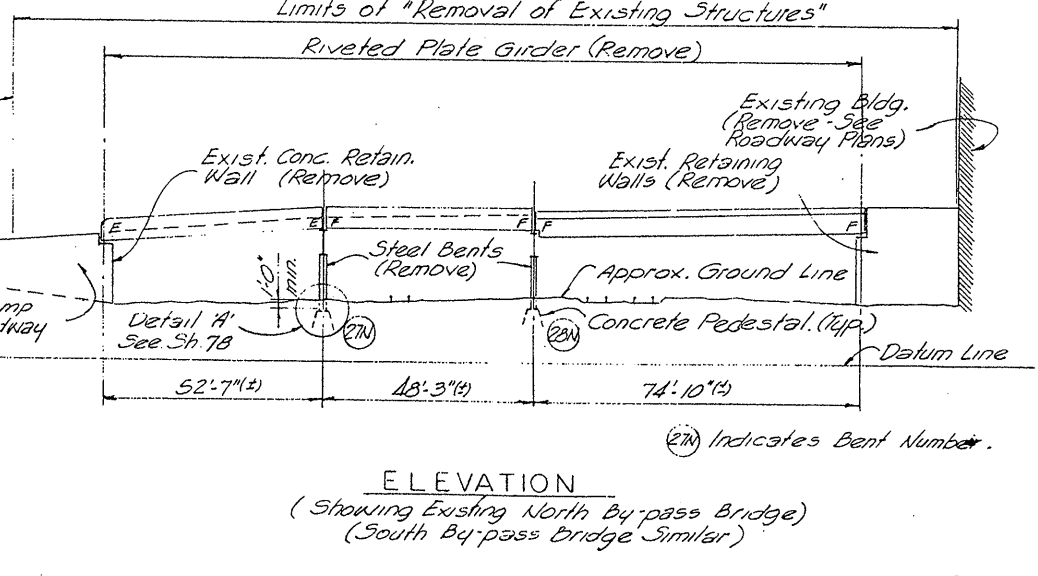 Limits of "Removal of Existing Structures"
Riveted Plate Girder (Remove)
Existing Bldg.
(Remove - See
Roadway Plans)
Exist. Conc. Retain.
Wall (Remove)
Exist. Retaining
Walls (Remove)
E
E
F
F
F
F
Steel Bents
(Remove)
1'-0"
min.
Approx. Ground Line
mp
dway
Detail 'A'
See Sh. 78
27N
28N
Concrete Pedestal. (Typ.)
Datum Line
52'-7"(±)
48'-3"(±)
74'-10"(±)
27N Indicates Bent Number.
ELEVATION
(Showing Existing North By-pass Bridge)
(South By-pass Bridge Similar)